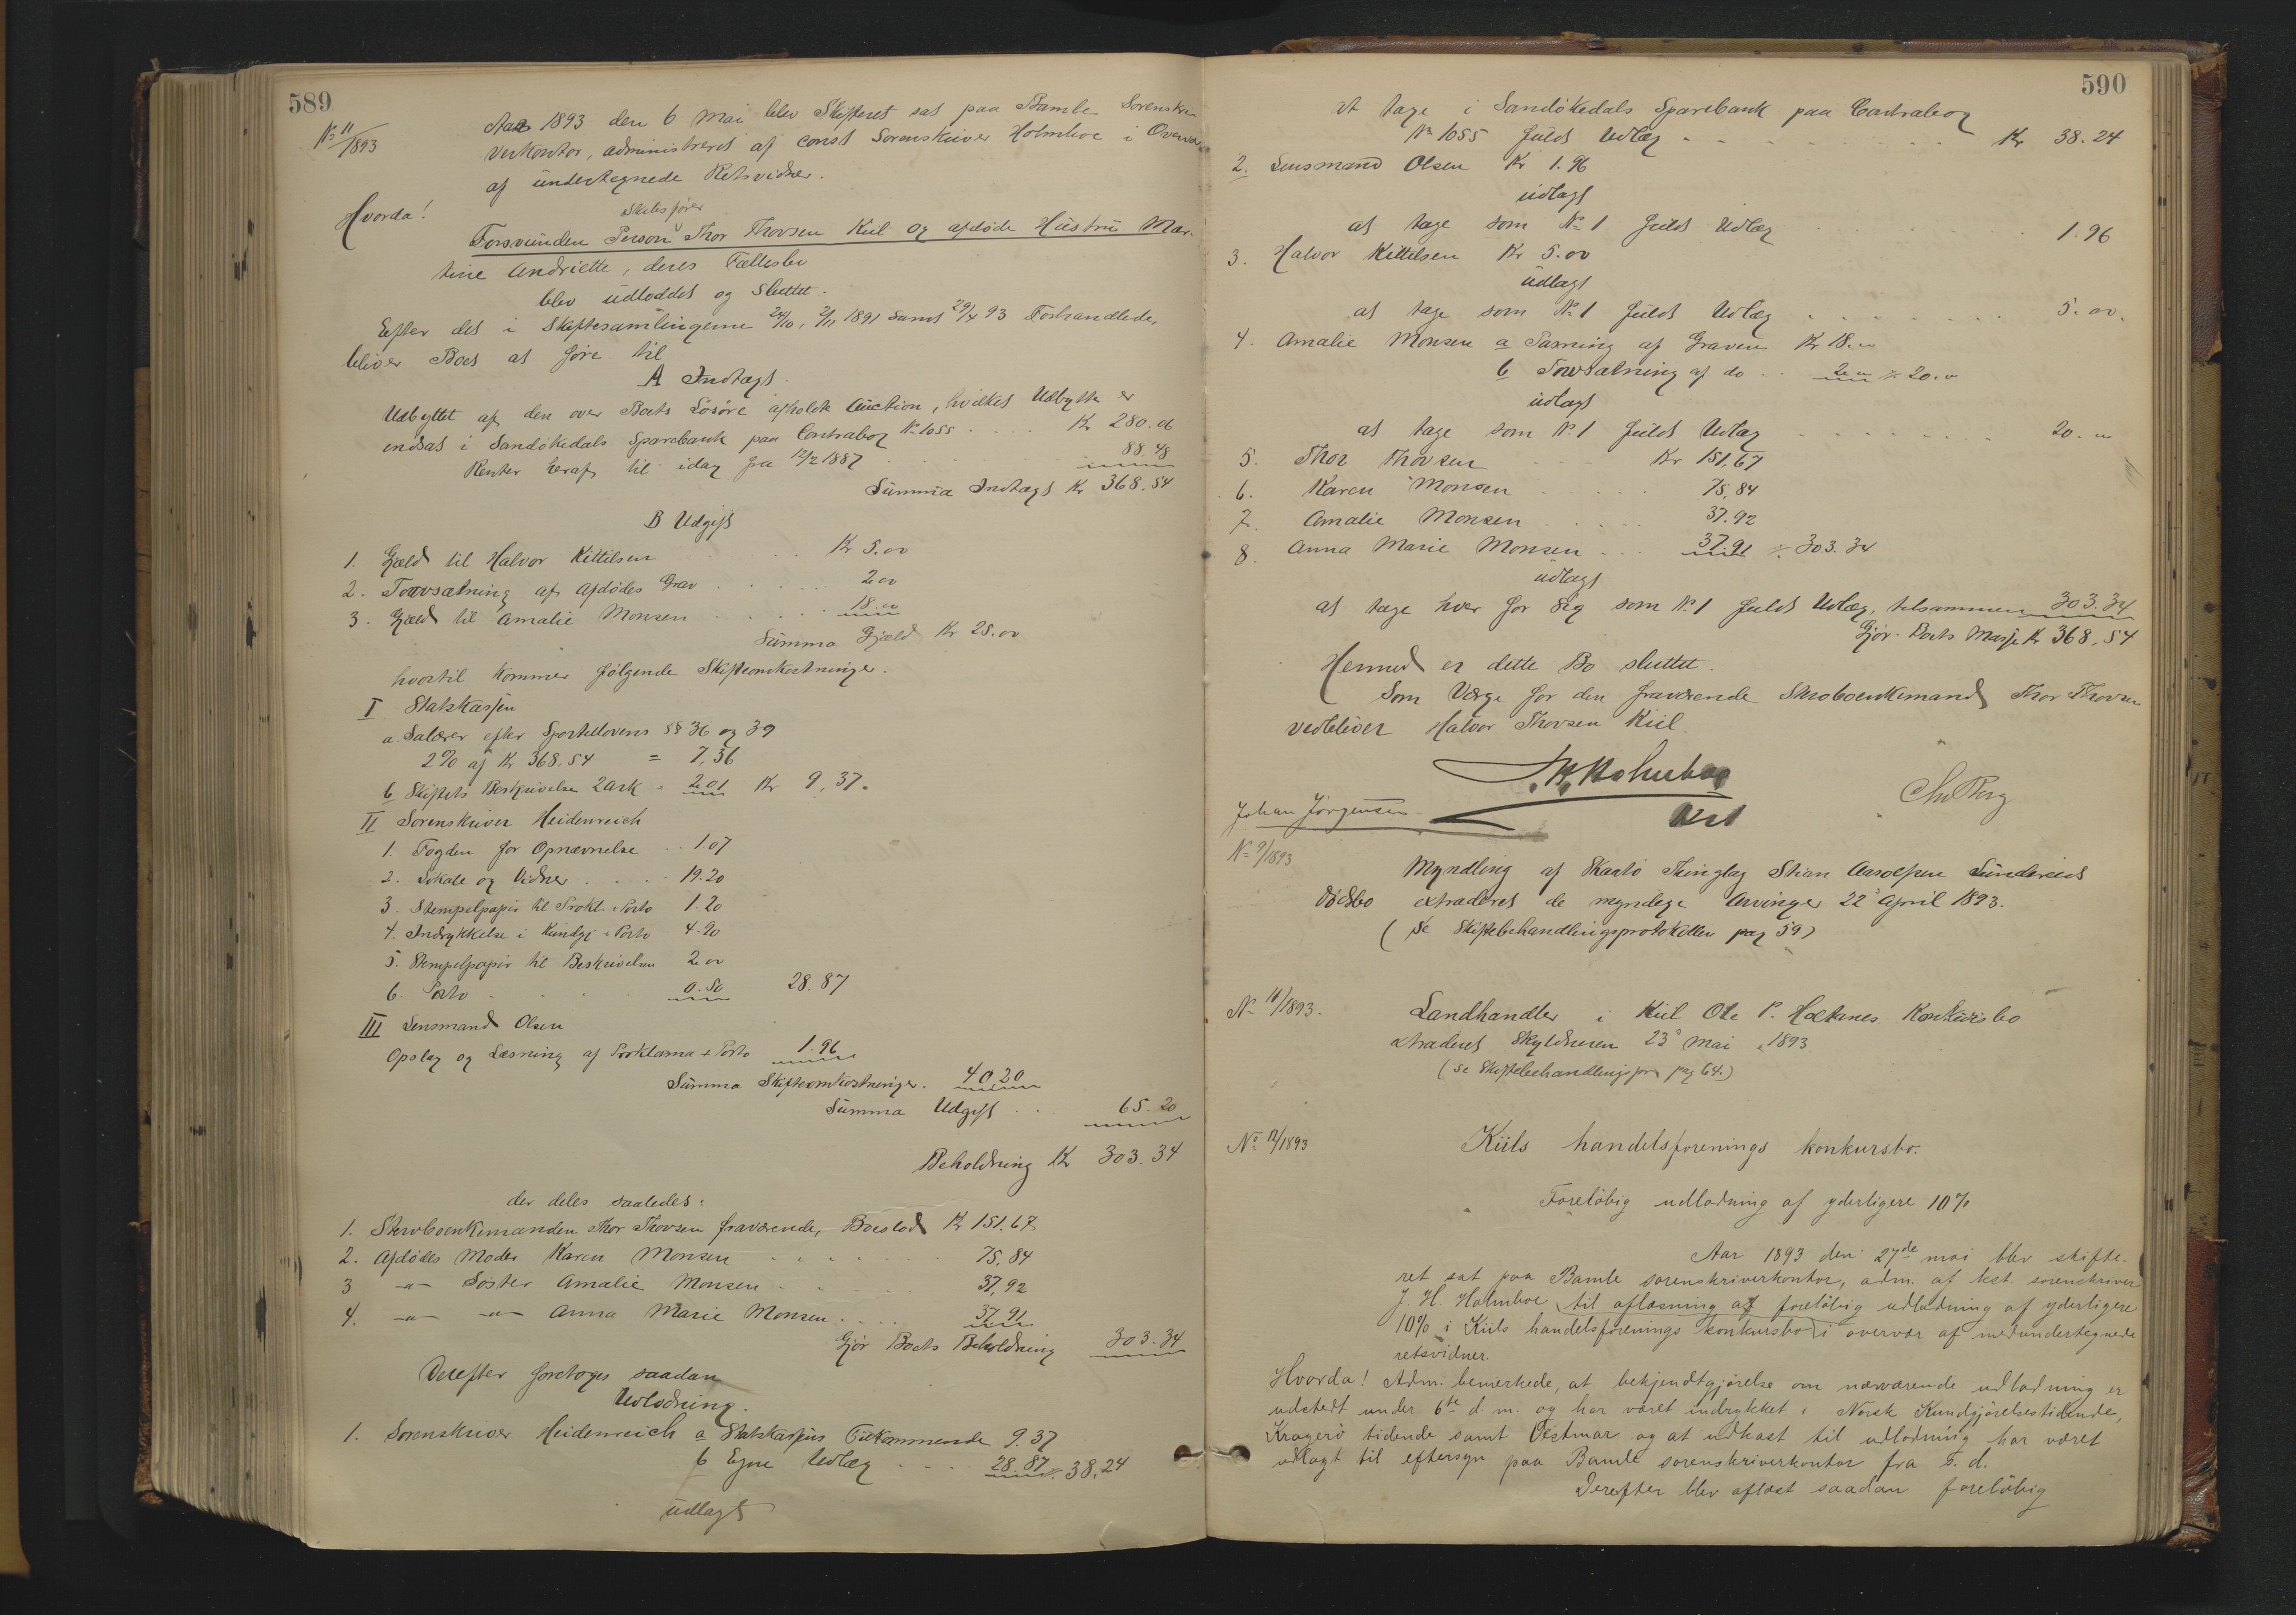 589
No 11/1893
Aar 1893 den 6 Mai blev Skifteret sat paa Bamle Sorenskri-
verkontor, administreret af const Sorenskriver Holmboe i Overvær
af undertegnede Retsvidner.
Hvorda!
Skibsfører
Forsvunden Person Thor Thorsen Kiil og afdøde Hustru Mar-
tine Andriette, deres Fællesbo
blev udloddet og sluttet.
Efter det i Skiftesamlingerne 24/10, 2/11 1891 samt 29/4 93 Forhandlede,
bliver Boet at føre til
A Indtægt.
Udbyttet af den over Boets Løsøre afholdte Auction, hvilket Udbytte er
indsat i Sandøkedals Sparebank paa Contrabog No 1055 .... Kr 280.06
Renter heraf til idag fra 12/2 1887 88.48
Summa Indtægt Kr 368.54
B Udgift
1. Gjæld til Halvor Kittilsen .. Kr 5.00
2. Torvsætning af Afdødes Grav ..... 2 00
3. Gjæld til Amalie Monsen ..... 18.00
Summa Gjæld Kr 25.00
hvortil kommer følgende Skifteomkostninger.
I Statskassen
a. Salærer efter Sportellovens §§ 36 og 39
2% af Kr 368.54 = 7,36
b Skiftets Beskrivelse 2 Ark = 2.01 Kr 9,37.
II Sorenskriver Heidenreich
1. Fogden for Opnævnelse .. 1.07
2. Lokale og Vidner .... 19.20
3. Stempelpapir til Prokl. + Porto 1.20
4. Indrykkelse i Kundgj + Porto 4.90
5. Stempelpapir til Beskrivelsen 2 00
6. Porto ... 0.50 28.87
III Lensmand Olsen
Opslag og Læsning af Proklama + Porto 1.96
Summa Skifteomkostninger. 40,20
Summa Udgift .. 65.20
Beholdning Kr 303.34
der deles saaledes:
1. Skrvboenkemanden Thor Thorsen fraværende, Boeslod Kr 151.67
2. Afdødes Moder Karen Monsen .... 75,84
3 -"- Søster Amalie Monsen .... 37,92
4. -"- -"- Anna Marie Monsen .... 37.91
Gjør Boets Beholdning 303.34
Derefter foretoges saadan
Udlodning.
1. Sorenskriver Heidenreich a Statskassens Tilkommende 9.37
b Egne Udlæg .... 28.87 = 38,24
udlagt
590
at tage i Sandøkedals Sparebank paa Contrabog
No 1055 fuldt Udlæg ........ Kr 38.24
2. Lensmand Olsen Kr 1.96
udlagt
at tage som No 1 fuldt Udlæg ..... 1.96
3. Halvor Kittilsen Kr 5.00
udlagt
at tage som No 1 fuldt Udlæg ........ 5.00.
4. Amalie Monsen a Pasning af Graven Kr 18.00
b Torvsætning af do .. 2 00 = 20.00
udlagt
at tage som No 1 fuldt Udlæg ........ 20.00
5. Thor Thorsen ... Kr 151,67
6. Karen Monsen ..... 75,84
7. Amalie Monsen ..... 37.92
8. Anna Marie Monsen ... 37.91 = 303.34
udlagt
at tage hver for sig som No 1 fuldt Udlæg, tilsammen 303.34
Gjør Boets Masse Kr 368,54
Hermed er dette Bo sluttet.
Som Værge for den fraværende Skrvboenkemand Thor Thorsen
vedbliver Halvor Thorsen Kiil
J.H. Holmboe
kst
Johan Jørgensen
Chr Berg
No 9/1893
Myndling af Skaatø Thinglag Stian Aaroesen Lindviks
dødsbo extraderet de myndige Arvinger 22 April 1893.
(se Skiftebehandlingsprotokollen pag 59)
No 10/1893.
Landhandler i Kiil Ole P. Hæknes Konkursbo
extraderet Skyldneren 23 Mai 1893
(se Skiftebehandlingspr pag 64.)
No 12/1893
Kiils handelsforenings konkursbo.
Foreløbig udlodning af yderligere 10%
Aar 1893 den 27de mai blev skifte-
ret sat paa Bamle sorenskriverkontor, adm. af kst. sorenskriver
J. H. Holmboe til aflæsning af foreløbig udlodning af yderligere
10% i Kiils handelsforenings konkursbo i overvær af medundertegnede
retsvidner.
Hvorda! Adm. bemerkede, at bekjendtgjørelse om nærværende udlodning er
udstedt under 6te d m. og har været indrykket i Norsk Kundgjørelsestidende,
Kragerø tidende samt Vestmar og at udkast til udlodning har været
udlagt til eftersyn paa Bamle sorenskriverkontor fra s. d.
Derefter blev aflæst saadan foreløbig